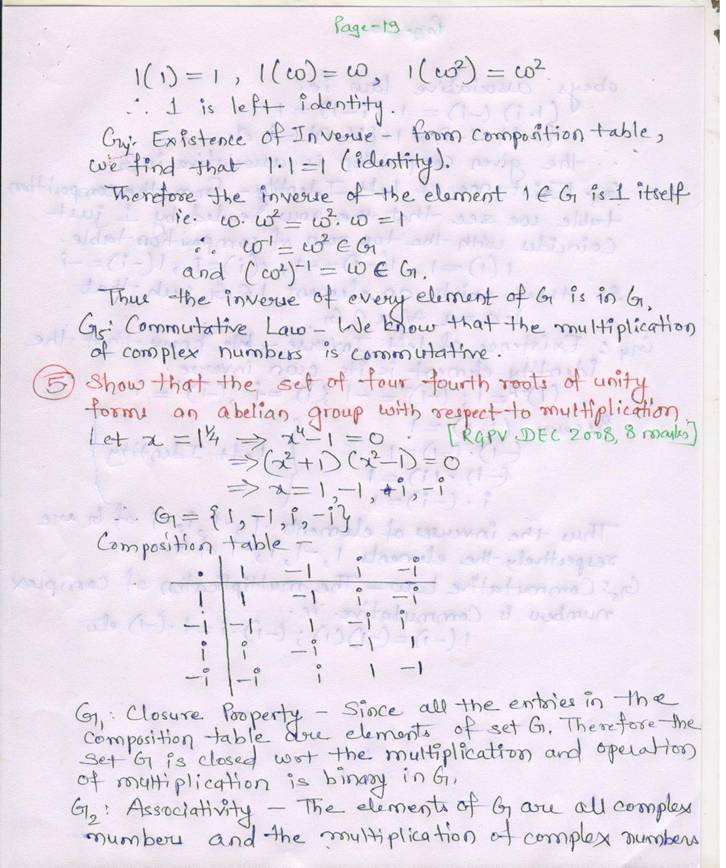 Page-19
1(1) = 1 , 1(ω) = ω, 1(ω²) = ω²
∴ 1 is left identity.
G₄: Existence of Inverse - from composition table,
we find that 1·1 = 1 (identity).
Therefore the inverse of the element 1 ∈ G is 1 itself
ie. ω·ω² = ω²·ω = 1
∴ ω⁻¹ = ω² ∈ G
and (ω²)⁻¹ = ω ∈ G.
Thus the inverse of every element of G is in G.
G₅: Commutative Law - We know that the multiplication
of complex numbers is commutative.
⑤ Show that the set of four fourth roots of unity
forms an abelian group with respect to multiplication.
Let x = 1^¼ ⇒ x⁴-1 = 0 [RGPV DEC 2008, 8 marks]
⇒ (x²+1) (x²-1) = 0
⇒ x = 1, -1, +i, -i
∴ G = {1, -1, i, -i}
Composition table -
· | 1 -1 i -i
1 | 1 -1 i -i
-i | -1 1 -i i
i | i -i -1 1
-i | -i i 1 -1
G₁: Closure Property - Since all the entries in the
composition table are elements of set G. Therefore the
set G is closed wrt the multiplication and operation
of multiplication is binary in G.
G₂: Associativity - The elements of G are all complex
numbers and the multiplication of complex numbers